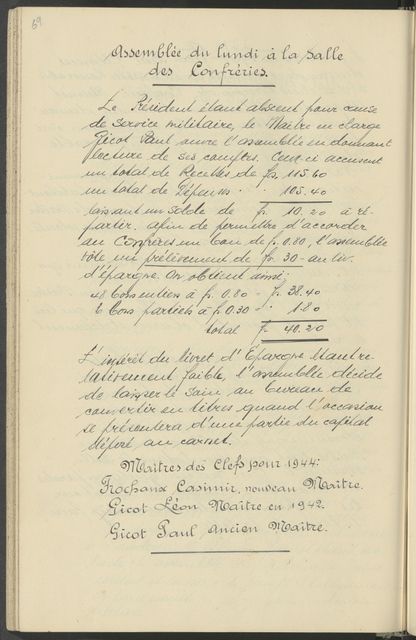 69
Assemblée du lundi à la salle
des Confréries.
Le Président étant absent pour cause
de service militaire, le Maître en charge
Gicot Paul ouvre l'assemblée en donnant
lecture de ses comptes. Ceux-ci accusent
un total de Recettes de frs. 115.60
un total de Dépenses " 105.40
laissant un solde de fr. 10.20 à ré-
partir. Afin de permettre d'accorder
au Confrères un bon de fr. 0.80, l'assemblée
vote un prélèvement de fr. 30.- au liv.
d'épargne. On obtient ainsi:
48 bons entiers à fr. 0.80 = fr. 38.40
6 bons partiels à fr. 0.30 = " 1.80
total fr. 40.20
L'intérêt du livret d'Épargne étant re-
lativement faible, l'assemblée décide
de laisser le soin au bureau de
convertir en titres, quand l'occasion
se présentera d'une partie du capital
déposé au carnet.
Maîtres des Clefs pour 1944:
Frochaux Casimir, nouveau Maître.
Gicot Léon Maître en 1942.
Gicot Paul, ancien Maître.